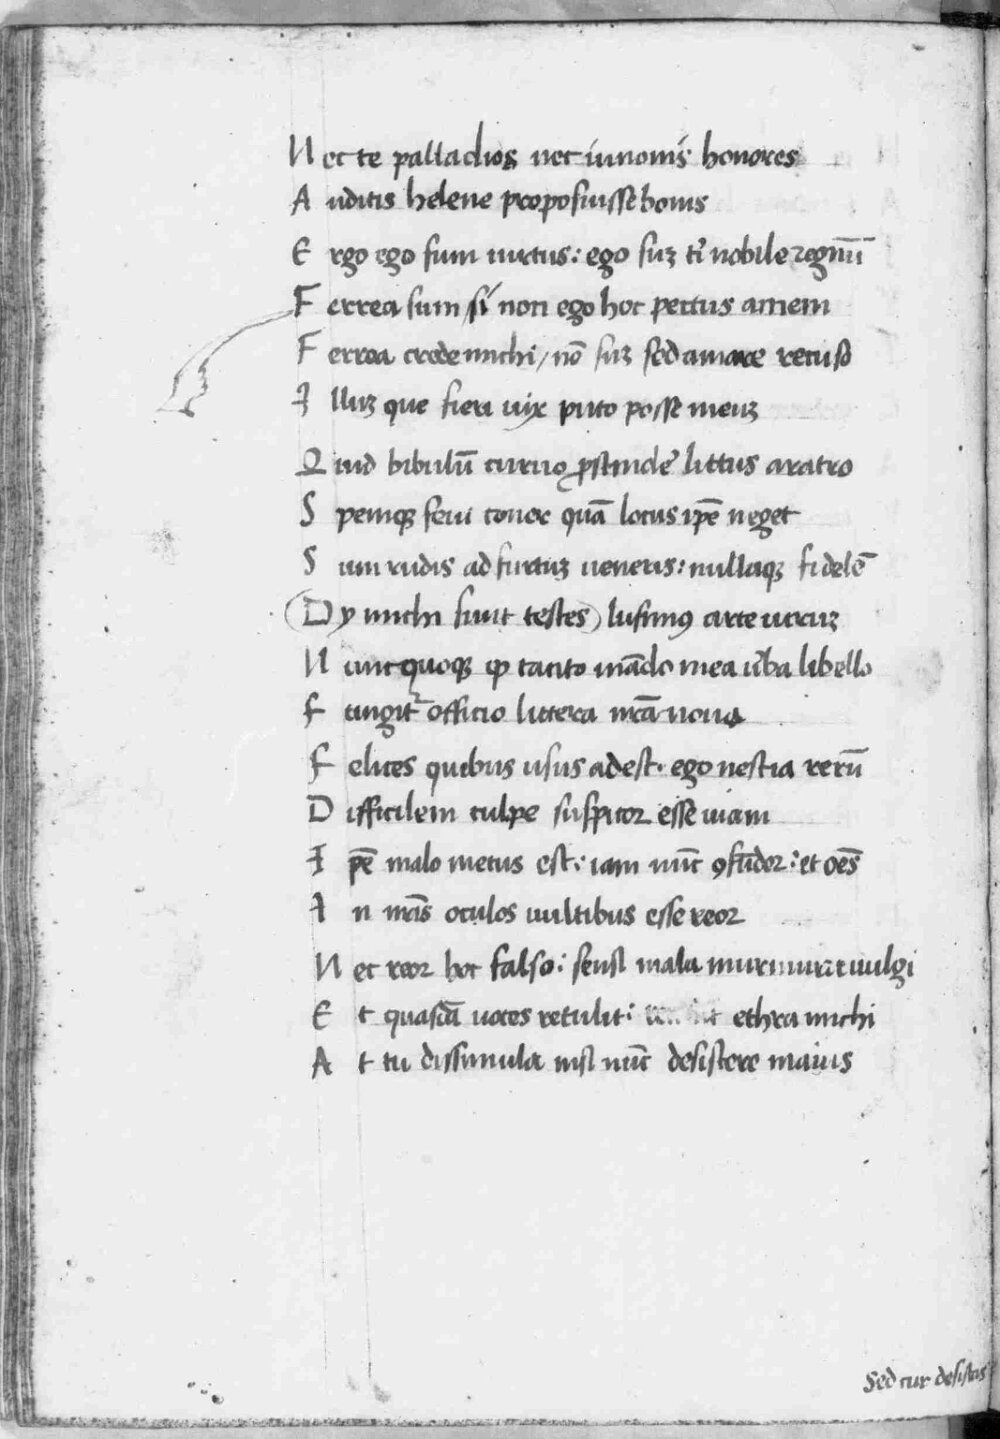 Nec te palladios nec iunonis honores
Auditis helene proposuisse bonis
Ergo ego sum uirtus: ego suȝ ti nobile regnū
Ferrea sum si non ego hoc pectus amem
Ferrea crede michi / nō suȝ sed amare recuso
Illuȝ que fieri uix puto posse meuȝ
Quid bibulū curuo ꝓscindē littus aratro
Spemqȝ sequi conor quā locus ipē neget
Sum rudis ad furtuȝ ueneris: nullaqȝ fidelē
(Dy michi sunt testes) lusimꝰ arte uiruȝ
Nunc quoqȝ ꝙ tacito mādo mea úba libello
Fungitᷣ officio littera nr̄a nouo
Felices quibus usus adest. ego nescia rerū
Difficilem culpe suspicor esse uiam
Ipē malo metus est: iam nūc ꝯfūdor: et oēs
In nr̄is oculos uultibus esse reor
Nec reor hoc falso: sensi mala murmura uulgi
Et quasdā uoces retulit: ethra michi
At tu dissimula nisi nūc desistere mauis
Sed cur desistas